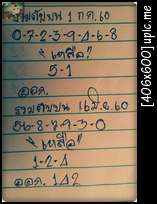 รวมดับบน 1 กค.60
0-7-2-3-9-4-6-8
เหลือ?
5-1
ออก.
รวมดับบน 16 มิ.ย.60
5-6-8-7-9-3-0
เหลือ
1-2-4
ออก. 142
[406x600] upic.me